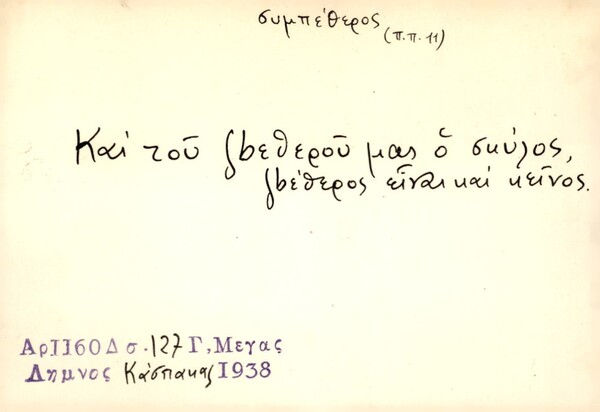 συμπέθερος
(π.π. 11)
Καὶ τοῦ ζβεθεροῦ μας ὁ σκύλος,
ζβέθερος εἶναι καὶ κεῖνος.
Αρ1160Δ σ. 127 Γ, Μεγας
Λημνος Κάσπακας 1938